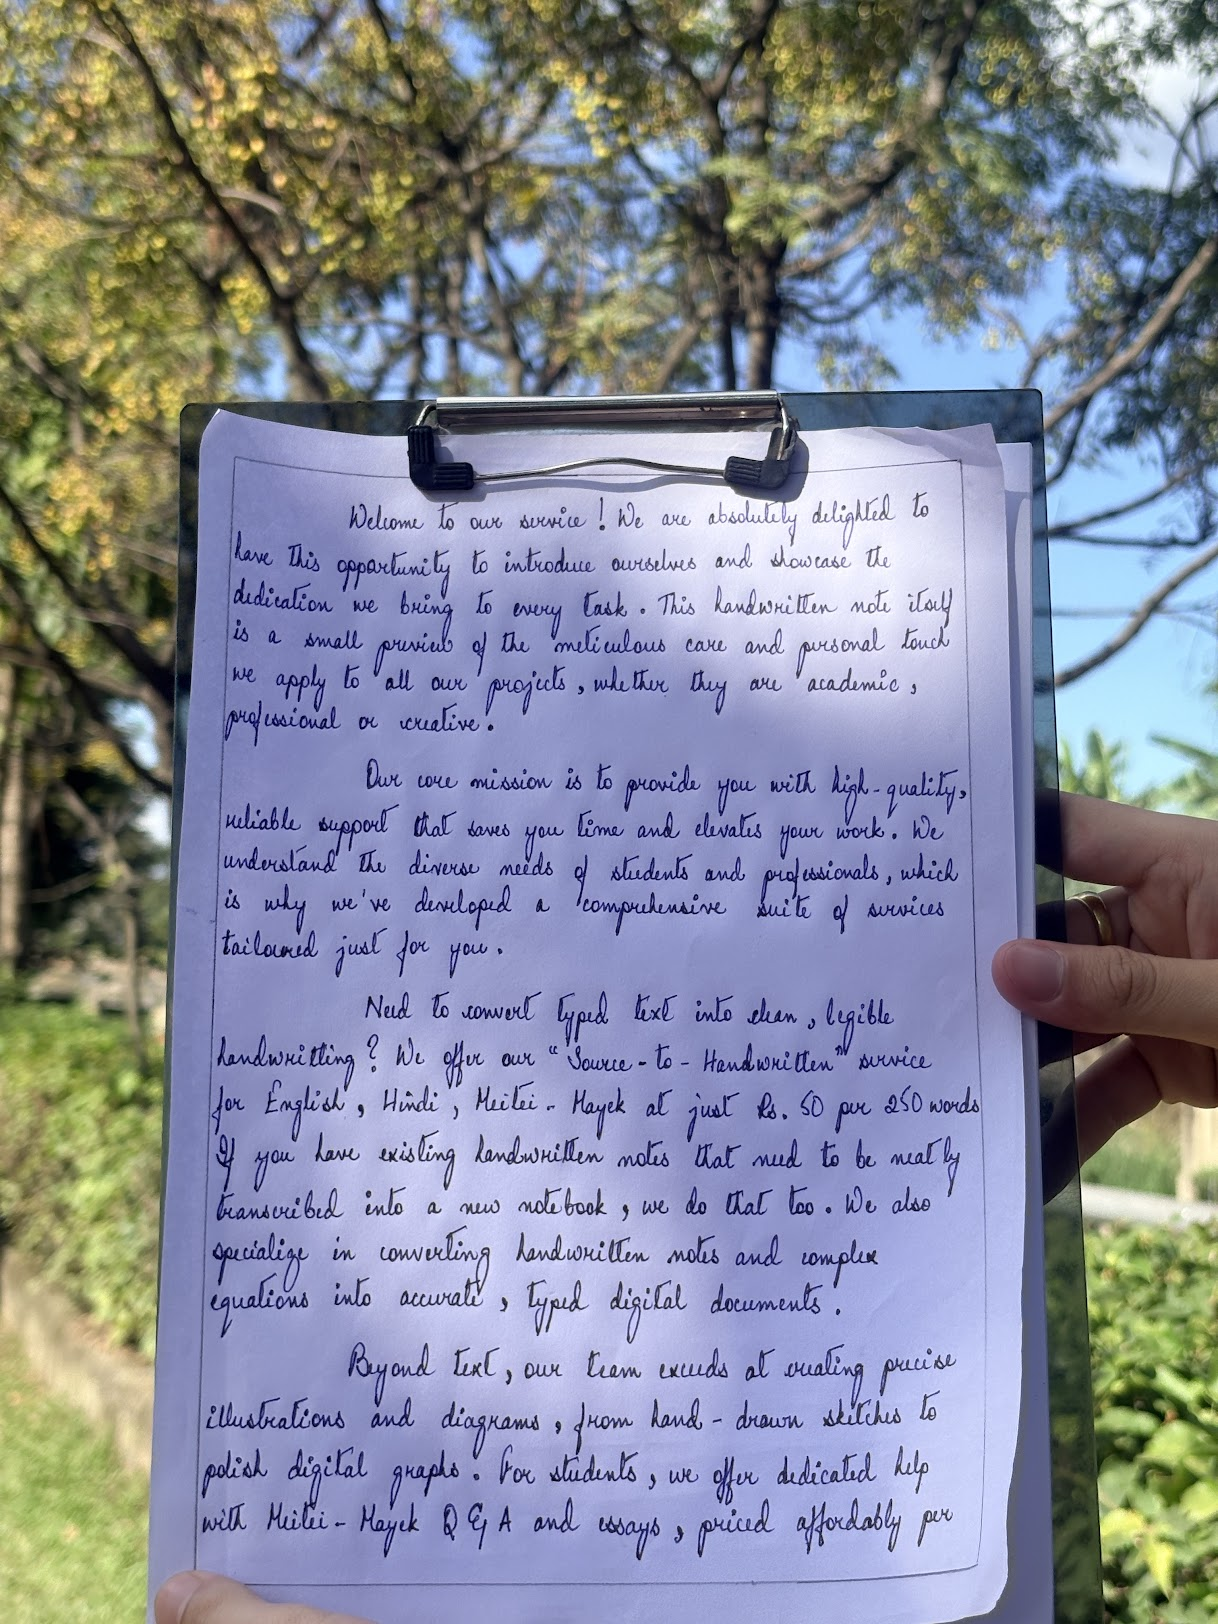 Welcome to our service! We are absolutely delighted to
have this opportunity to introduce ourselves and showcase the
dedication we bring to every task. This handwritten note itself
is a small preview of the meticulous care and personal touch
we apply to all our projects, whether they are academic,
professional or creative.
Our core mission is to provide you with high-quality,
reliable support that saves you time and elevates your work. We
understand the diverse needs of students and professionals, which
is why we've developed a comprehensive suite of services
tailoured just for you.
Need to convert typed text into clean, legible
handwritting? We offer our "Source-to-Handwritten" service
for English, Hindi, Meitei-Mayek at just Rs. 50 per 250 words
If you have existing handwritten notes that need to be neatly
transcribed into a new notebook, we do that too. We also
specialize in converting handwritten notes and complex
equations into accurate, typed digital documents.
Beyond text, our team exceeds at creating precise
illustrations and diagrams, from hand-drawn sketches to
polish digital graphs. For students, we offer dedicated help
with Meitei-Mayek Q & A and essays, priced affordably per